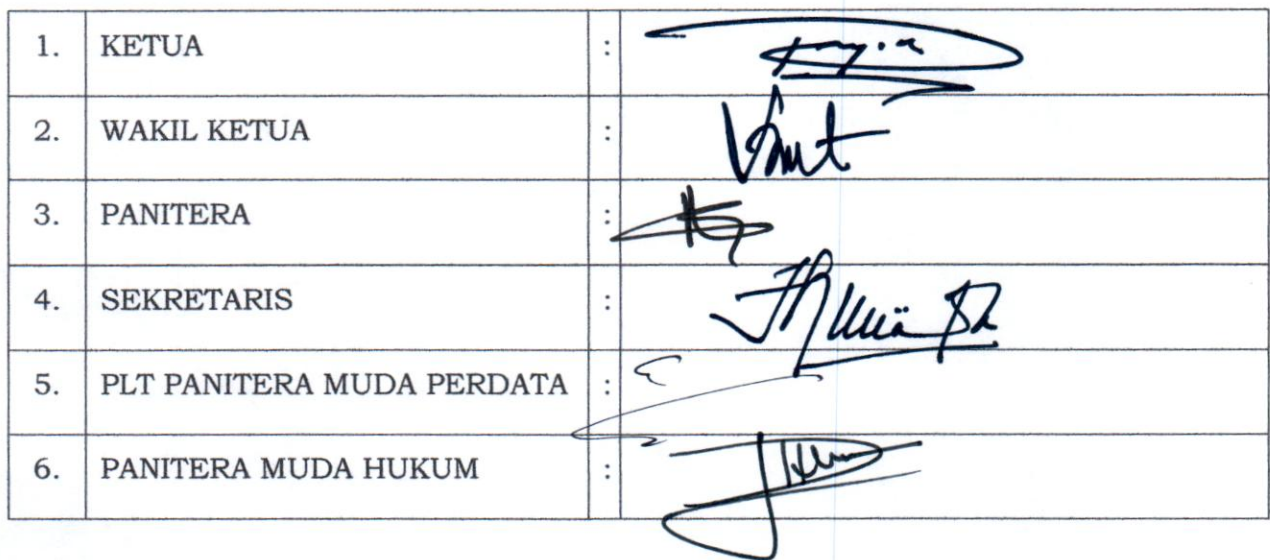 1. KETUA :
2. WAKIL KETUA :
3. PANITERA :
4. SEKRETARIS :
5. PLT PANITERA MUDA PERDATA :
6. PANITERA MUDA HUKUM :